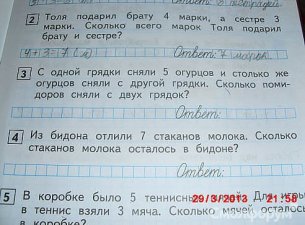 2 Толя подарил брату 4 марки, а сестре 3
марки. Сколько всего марок Толя подарил
брату и сестре?
4+3=7 (м) Ответ: 7 марок
3 С одной грядки сняли 5 огурцов и столько же
огурцов сняли с другой грядки. Сколько поми-
доров сняли с двух грядок?
Ответ:
4 Из бидона отлили 7 стаканов молока. Сколько
стаканов молока осталось в бидоне?
Ответ:
5 В коробке было 5 теннисных Для игры
29/3/2013 21:58
в теннис взяли 3 мяча. Сколько мячей осталось
в коробке?